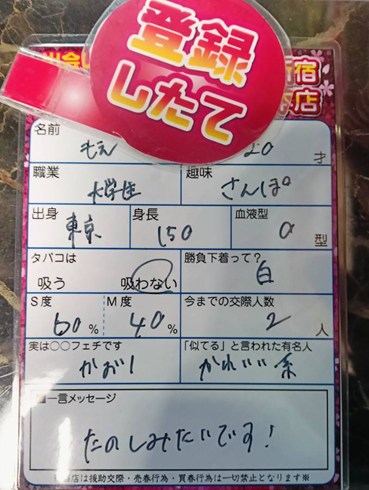 登録
したて
出会い
新宿
本店
名前
もえ
20才
職業
大学生
趣味
さんぽ
出身
東京
身長
150
血液型
O型
タバコは
吸う 吸わない
勝負下着って?
白
S度
60%
M度
40%
今までの交際人数
2人
実は○○フェチです
かおり
「似てる」と言われた有名人
かわいい系
一言メッセージ
たのしみたいです!
当店は援助交際・売春行為・買春行為は一切禁止となります※